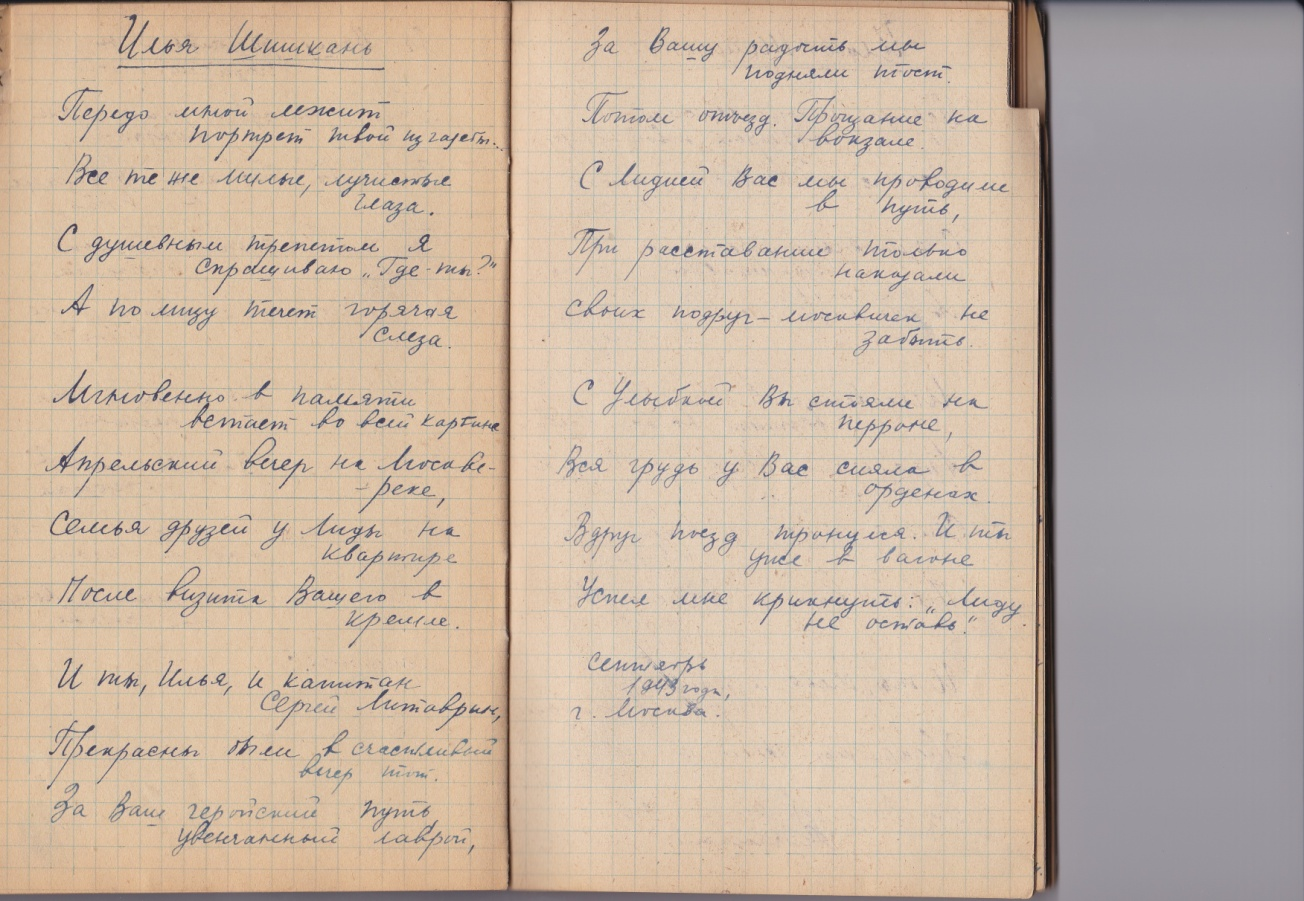 Илья Шишкань
Передо мной лежит
портрет твой из газеты...
Все те же милые, лучистые
глаза.
С душевным трепетом я
спрашиваю „Где-ты?"
А по лицу течет горячая
слеза.
Мгновенно в памяти
встает во всей картине
Апрельский вечер на Москве-
-реке,
Семья друзей у Лиды на
квартире
После визита Вашего в
Кремле.
И ты, Илья, и капитан
Сергей Литаврин,
Прекрасны были в счастливый
вечер тот.
За Ваш геройский путь,
увенчанный лаврой,
За Вашу радость мы
подняли тост.
Потом отъезд. Прощание на
вокзале.
С Лидией Вас мы проводили
в путь,
При расставании только
наказали
Своих подруг-москвичек не
забыть.
С Улыбкой Вы стояли на
перроне,
Вся грудь у Вас сияла в
орденах.
Вдруг поезд тронулся. И ты
уже в вагоне
Успел мне крикнуть: „Лиду
не оставь."
Сентябрь
1943 года,
г. Москва.